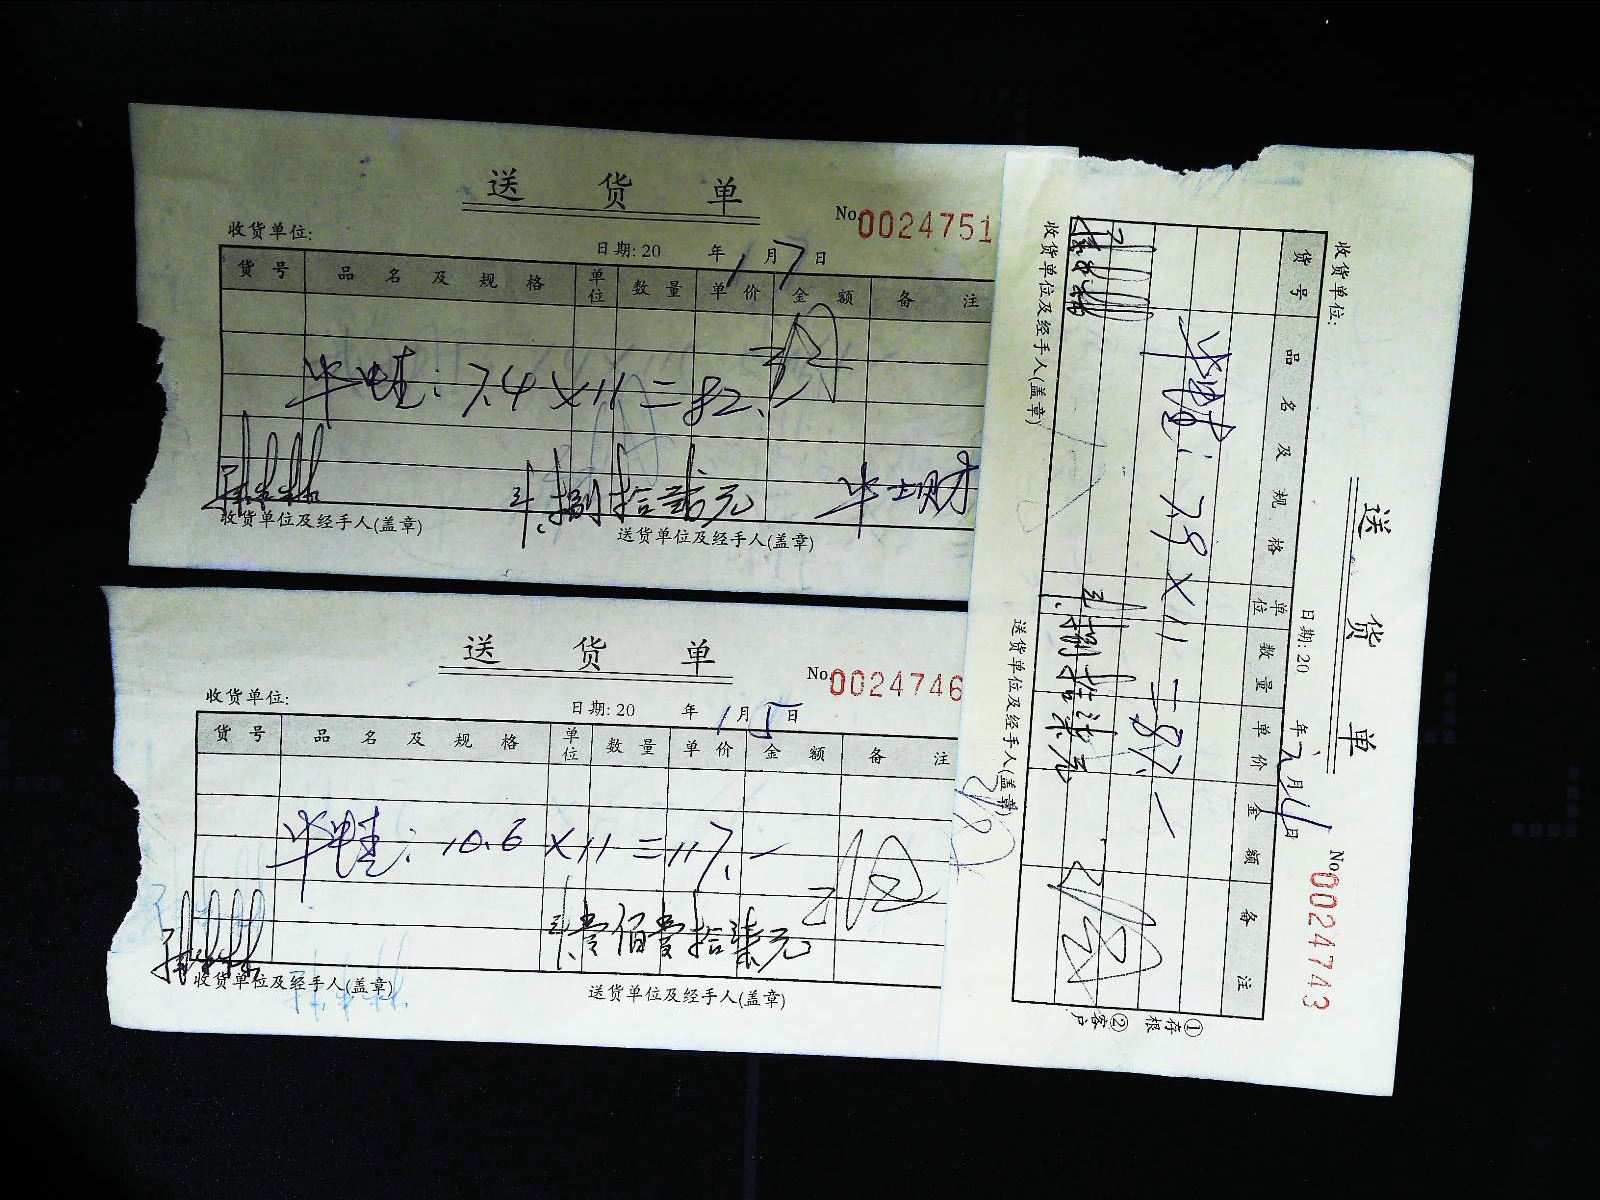 送 货 单
No 0024751
收货单位:
日期: 20 年 1 月 7 日
货 号 品 名 及 规 格 单位 数 量 单 价 金 额 备 注
7.4 × 11 = 82.
捌拾贰元
收货单位及经手人(盖章)
送货单位及经手人(盖章)
送 货 单
No 0024746
收货单位:
日期: 20 年 1 月 5 日
货 号 品 名 及 规 格 单位 数 量 单 价 金 额 备 注
10.6 × 11 = 117.
壹佰壹拾柒元
收货单位及经手人(盖章)
送货单位及经手人(盖章)
送 货 单
No 0024743
收货单位:
日期: 20 年 月 日
货 号 品 名 及 规 格 单位 数 量 单 价 金 额 备 注
7.9 × 11 = 87.
捌拾柒元
收货单位及经手人(盖章)
送货单位及经手人(盖章)
①存根 ②客户